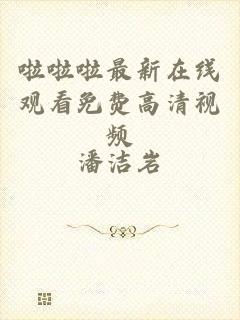 啦啦啦最新在线
观看免费高清视
频
潘洁岩